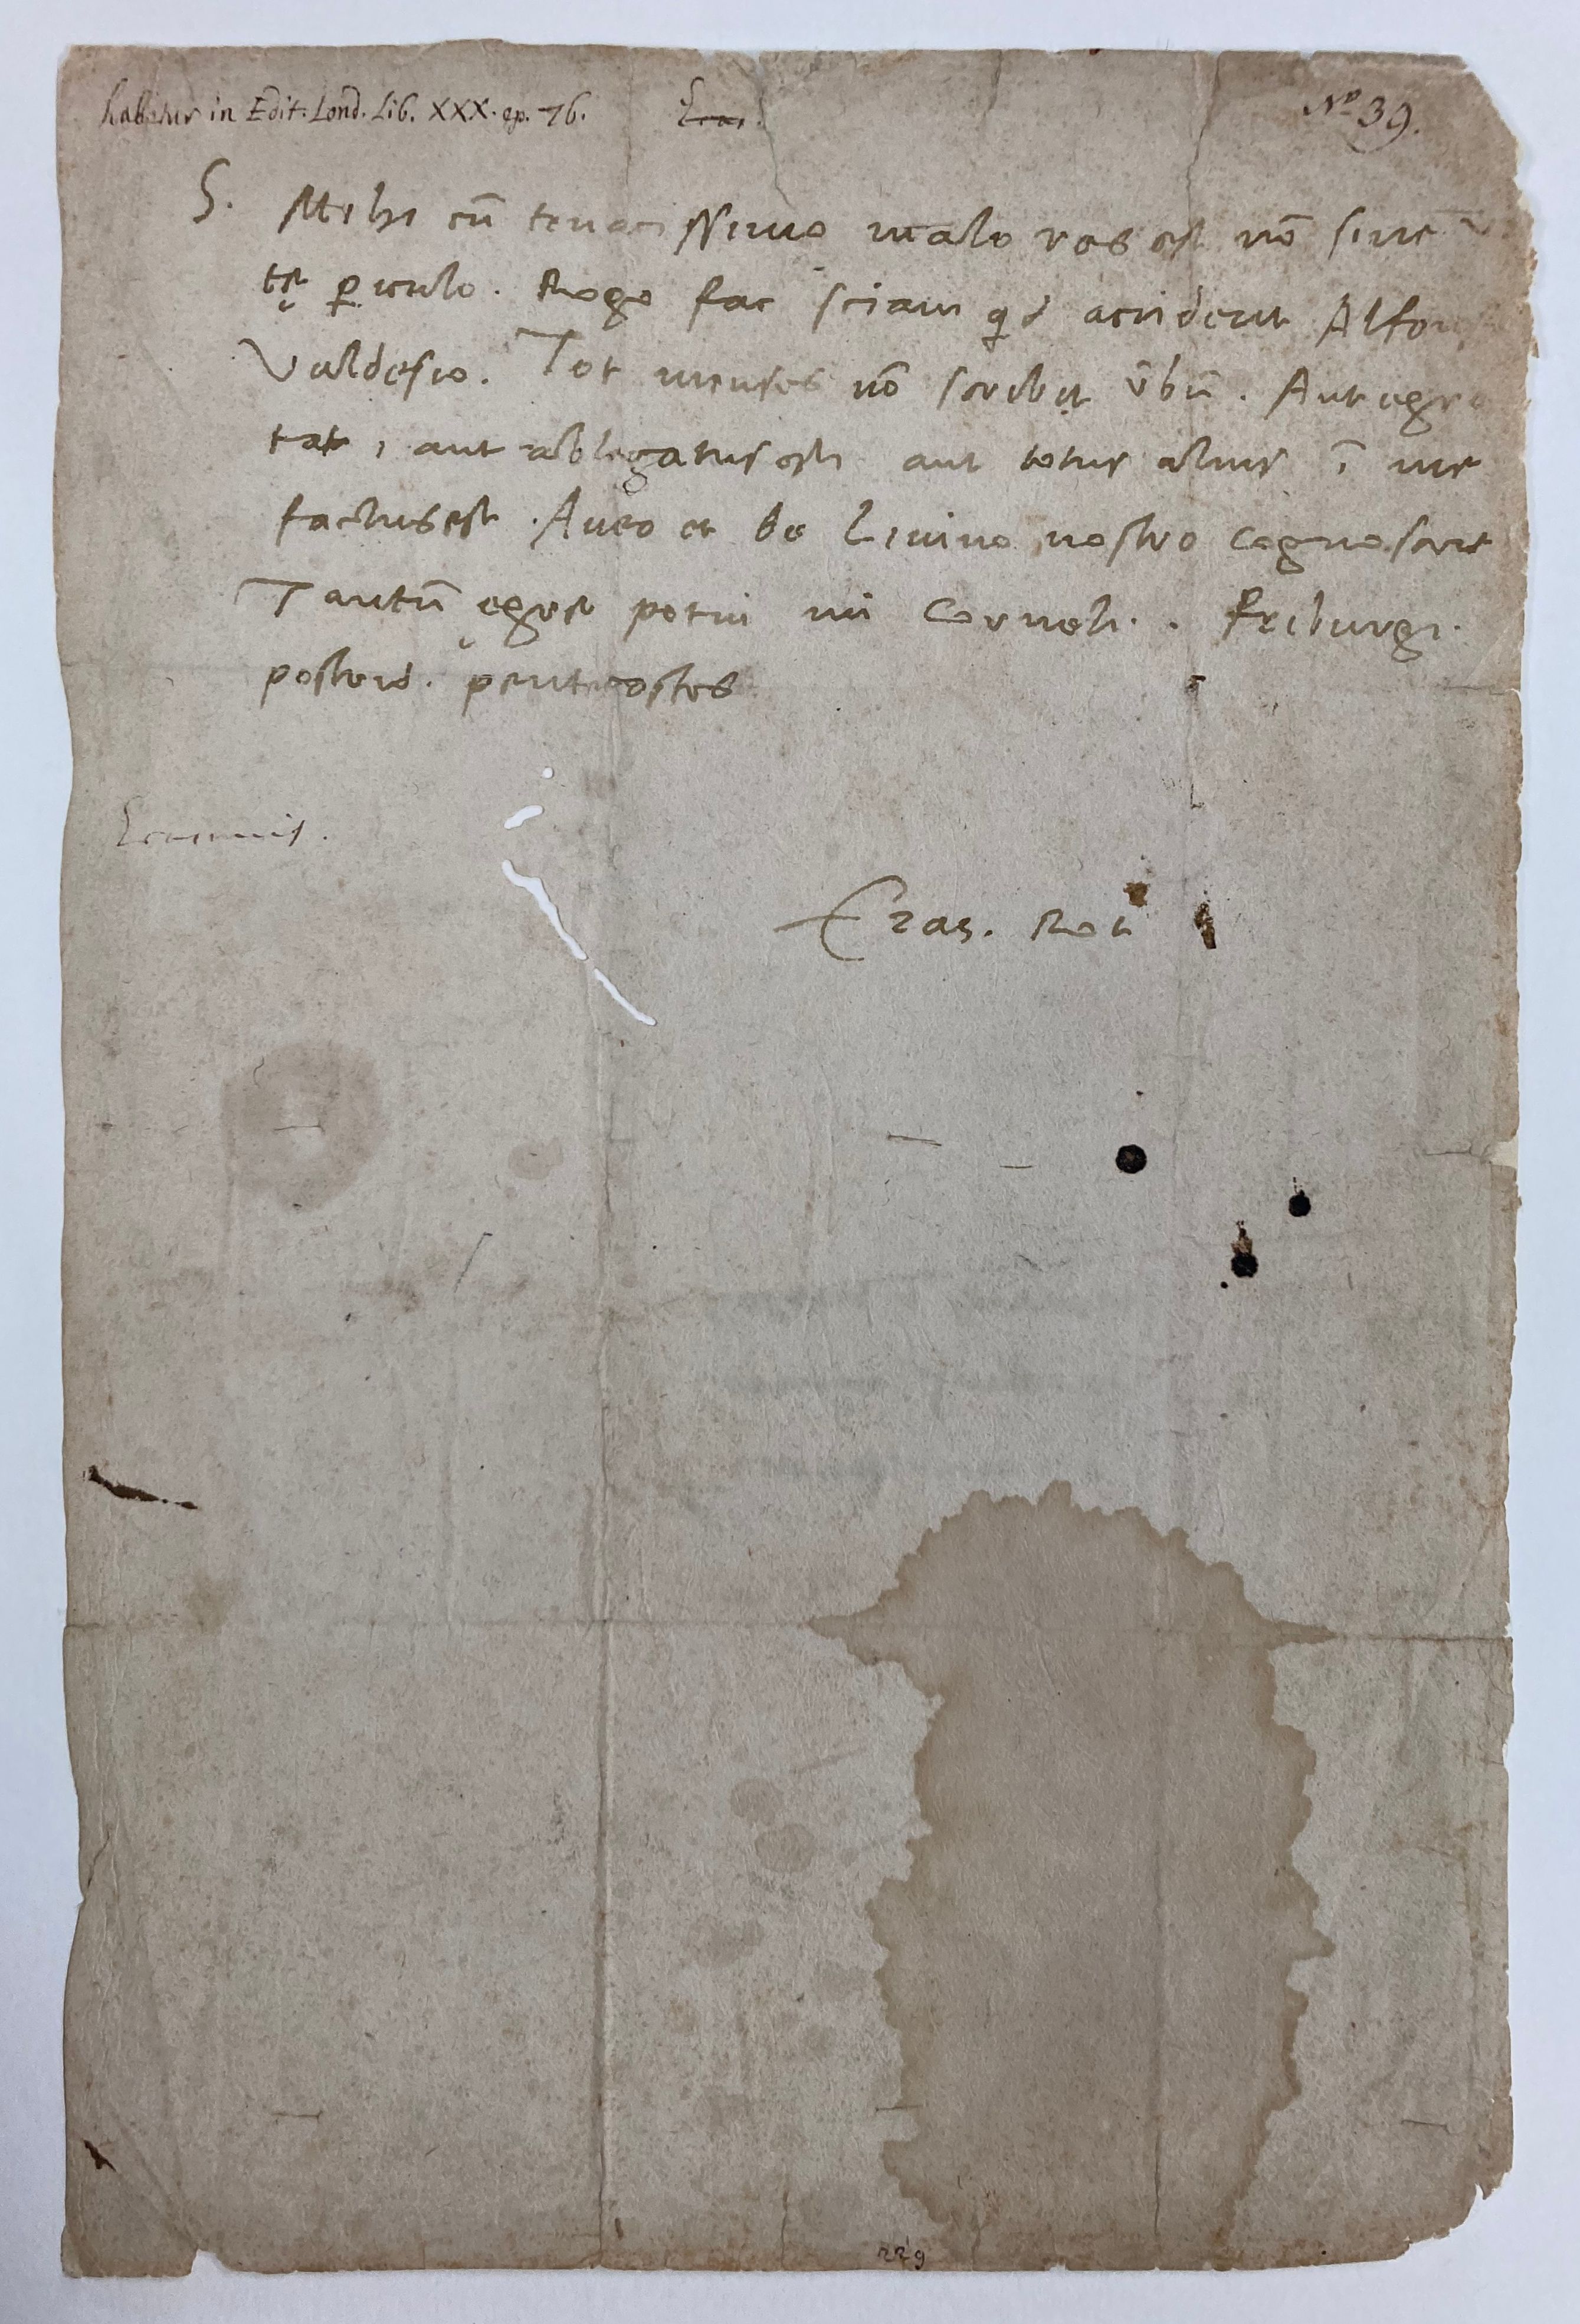 habetur in Edit. Lond. Lib. XXX. ep. 76.
Nº 39.
S. Mihi cū tenacissimo malo res est nō sine
tę ꝑiculo. Rogo fac sciam qd acciderit Alfon
Valdesio. Tot menses nō scribit v̄bū. Aut egro
tat, aut ablegatus est, aut totus alius ī me
factus est. Aveo et de Livino nostro cognoscere
Tantū ęgre potui mi Corneli. Friburgi.
postrid. pentecostes
Erasmus.
Eras. Rot
229